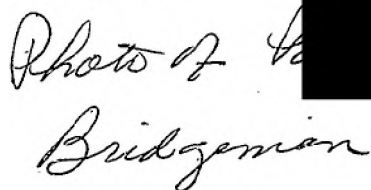 Photo of
Bridgeman